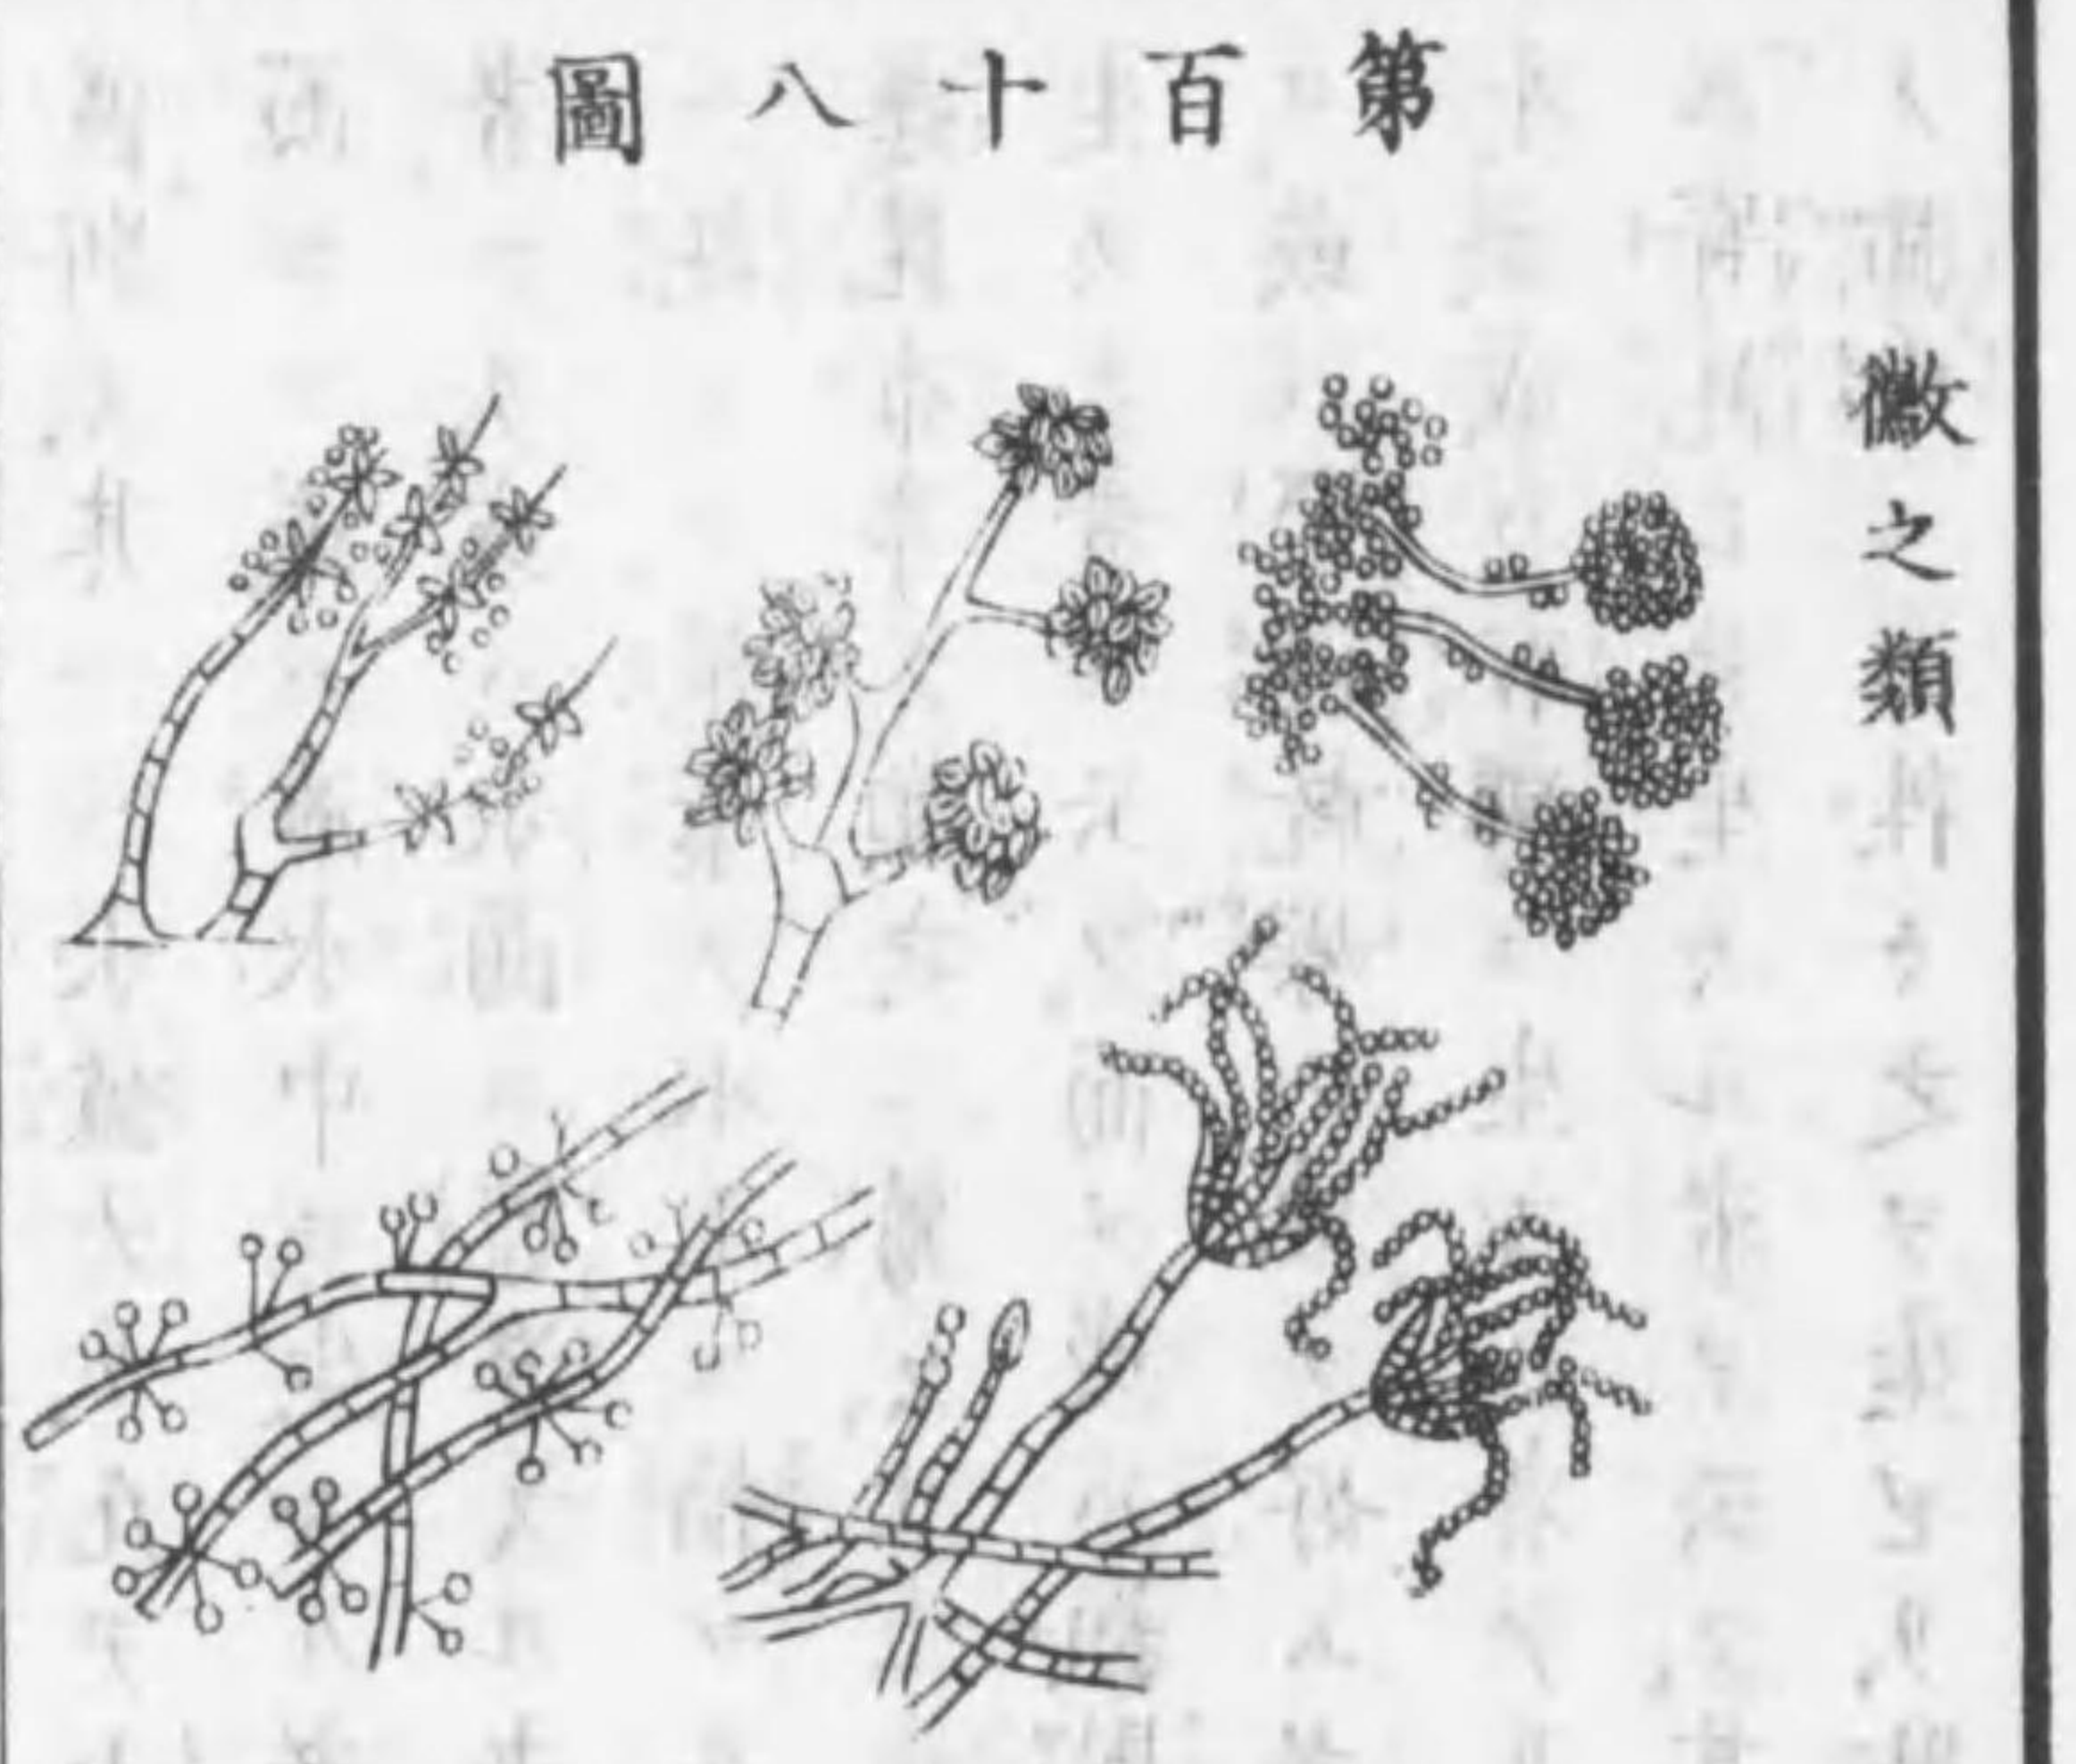 第百十八圖
黴之類